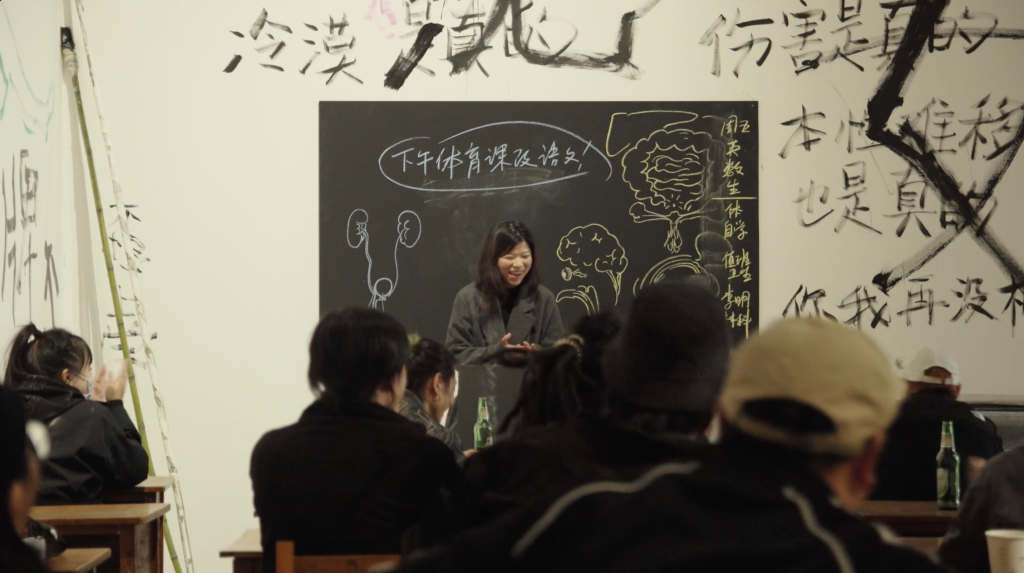 冷漠是真的
伤害是真的
本性难移
也是真的
你我再没
下午体育课改语文!
周五
英
数
生
体
自学
值班生